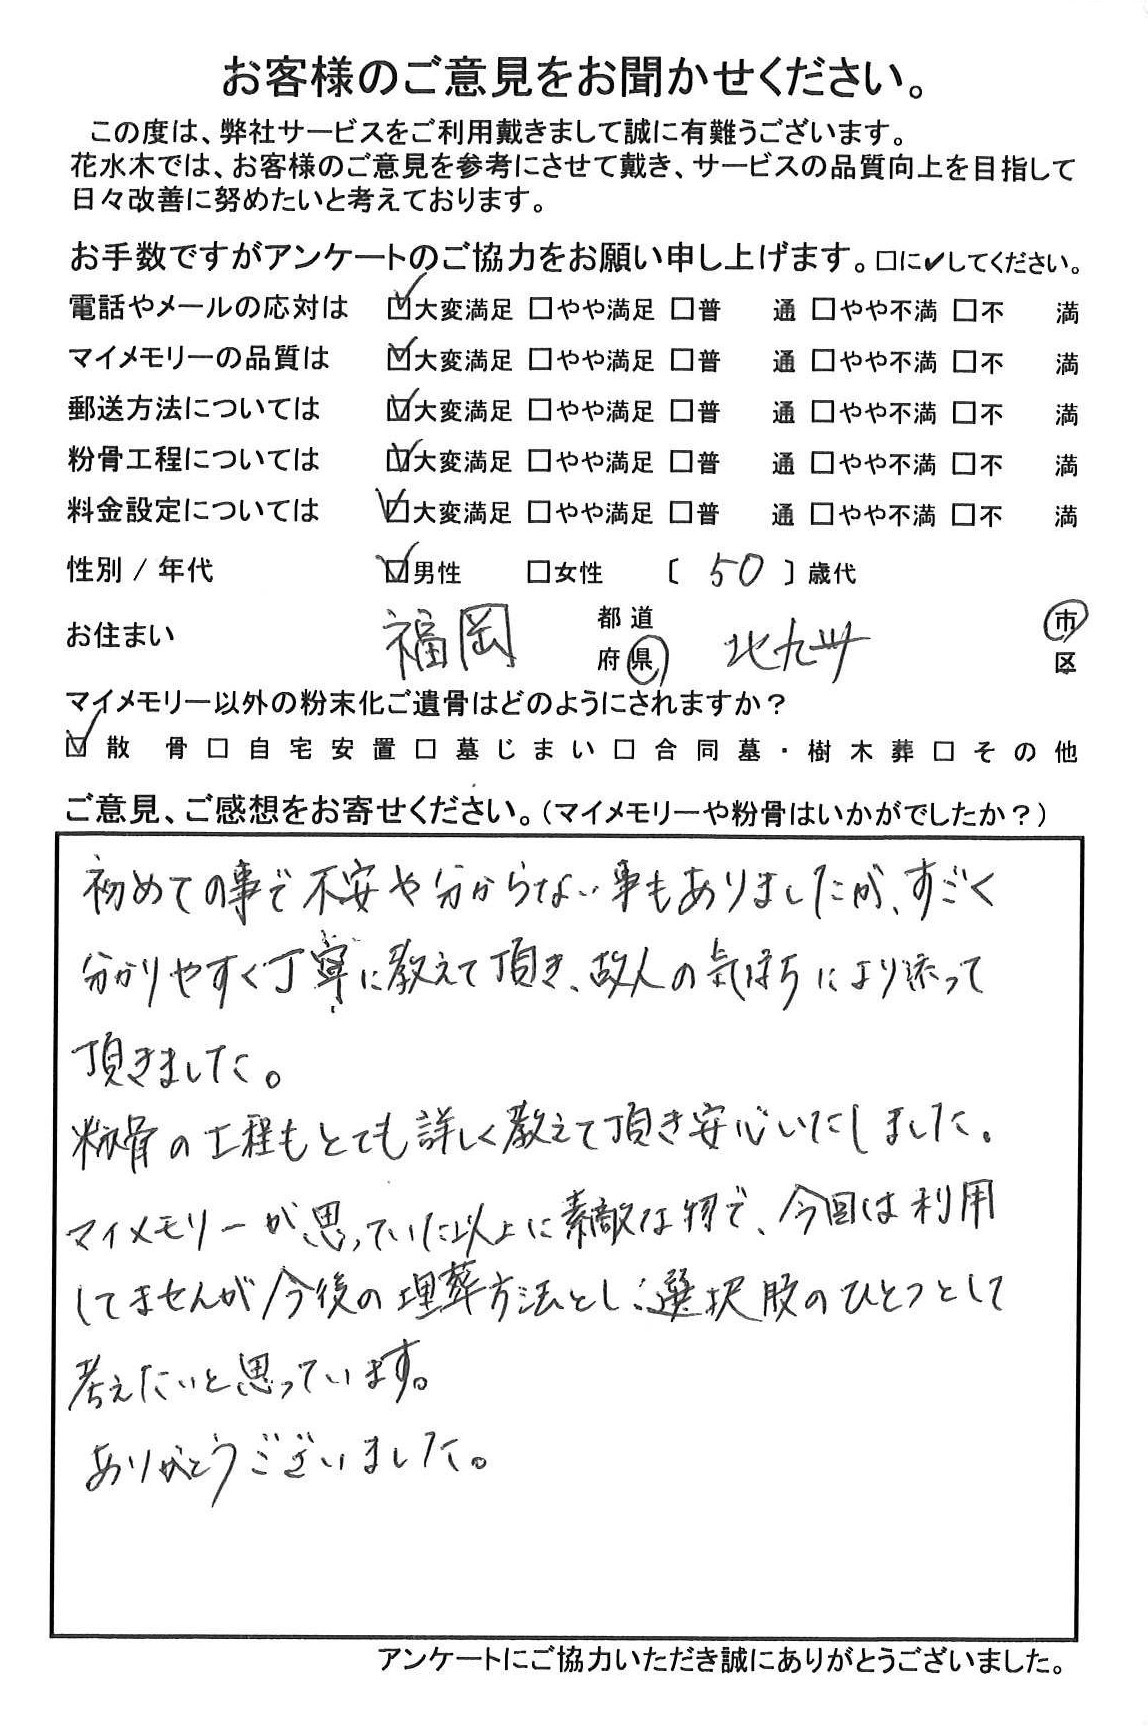 お客様のご意見をお聞かせください。
この度は、弊社サービスをご利用戴きまして誠に有難うございます。
花水木では、お客様のご意見を参考にさせて戴き、サービスの品質向上を目指して
日々改善に努めたいと考えております。
お手数ですがアンケートのご協力をお願い申し上げます。□に✔してください。
電話やメールの応対は ☑大変満足 □やや満足 □普 通 □やや不満 □不 満
マイメモリーの品質は ☑大変満足 □やや満足 □普 通 □やや不満 □不 満
郵送方法については ☑大変満足 □やや満足 □普 通 □やや不満 □不 満
粉骨工程については ☑大変満足 □やや満足 □普 通 □やや不満 □不 満
料金設定については ☑大変満足 □やや満足 □普 通 □やや不満 □不 満
性別 / 年代 ☑男性 □女性 〔 50 〕歳代
お住まい 福岡 都道府県 北九州 市区
マイメモリー以外の粉末化ご遺骨はどのようにされますか？
☑散 骨 □自宅安置 □墓じまい □合同墓・樹木葬 □その他
ご意見、ご感想をお寄せください。（マイメモリーや粉骨はいかがでしたか？）
初めての事で不安や分からない事もありましたが、すごく
分かりやすく丁寧に教えて頂き、故人の気持ちにより添って
頂きました。
粉骨の工程もとても詳しく教えて頂き安心いたしました。
マイメモリーが思っていた以上に素敵な物で、今回は利用
してませんが今後の埋葬方法とし選択肢のひとつとして
考えたいと思っています。
ありがとうございました。
アンケートにご協力いただき誠にありがとうございました。